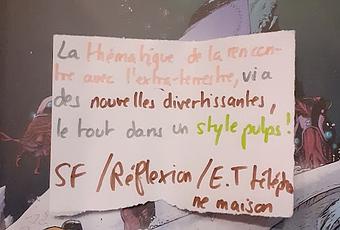 La thématique de la rencon-
tre avec l'extra-terrestre, via
des nouvelles divertissantes,
le tout dans un style pulps!
SF / Réflexion / E.T télépho
ne maison